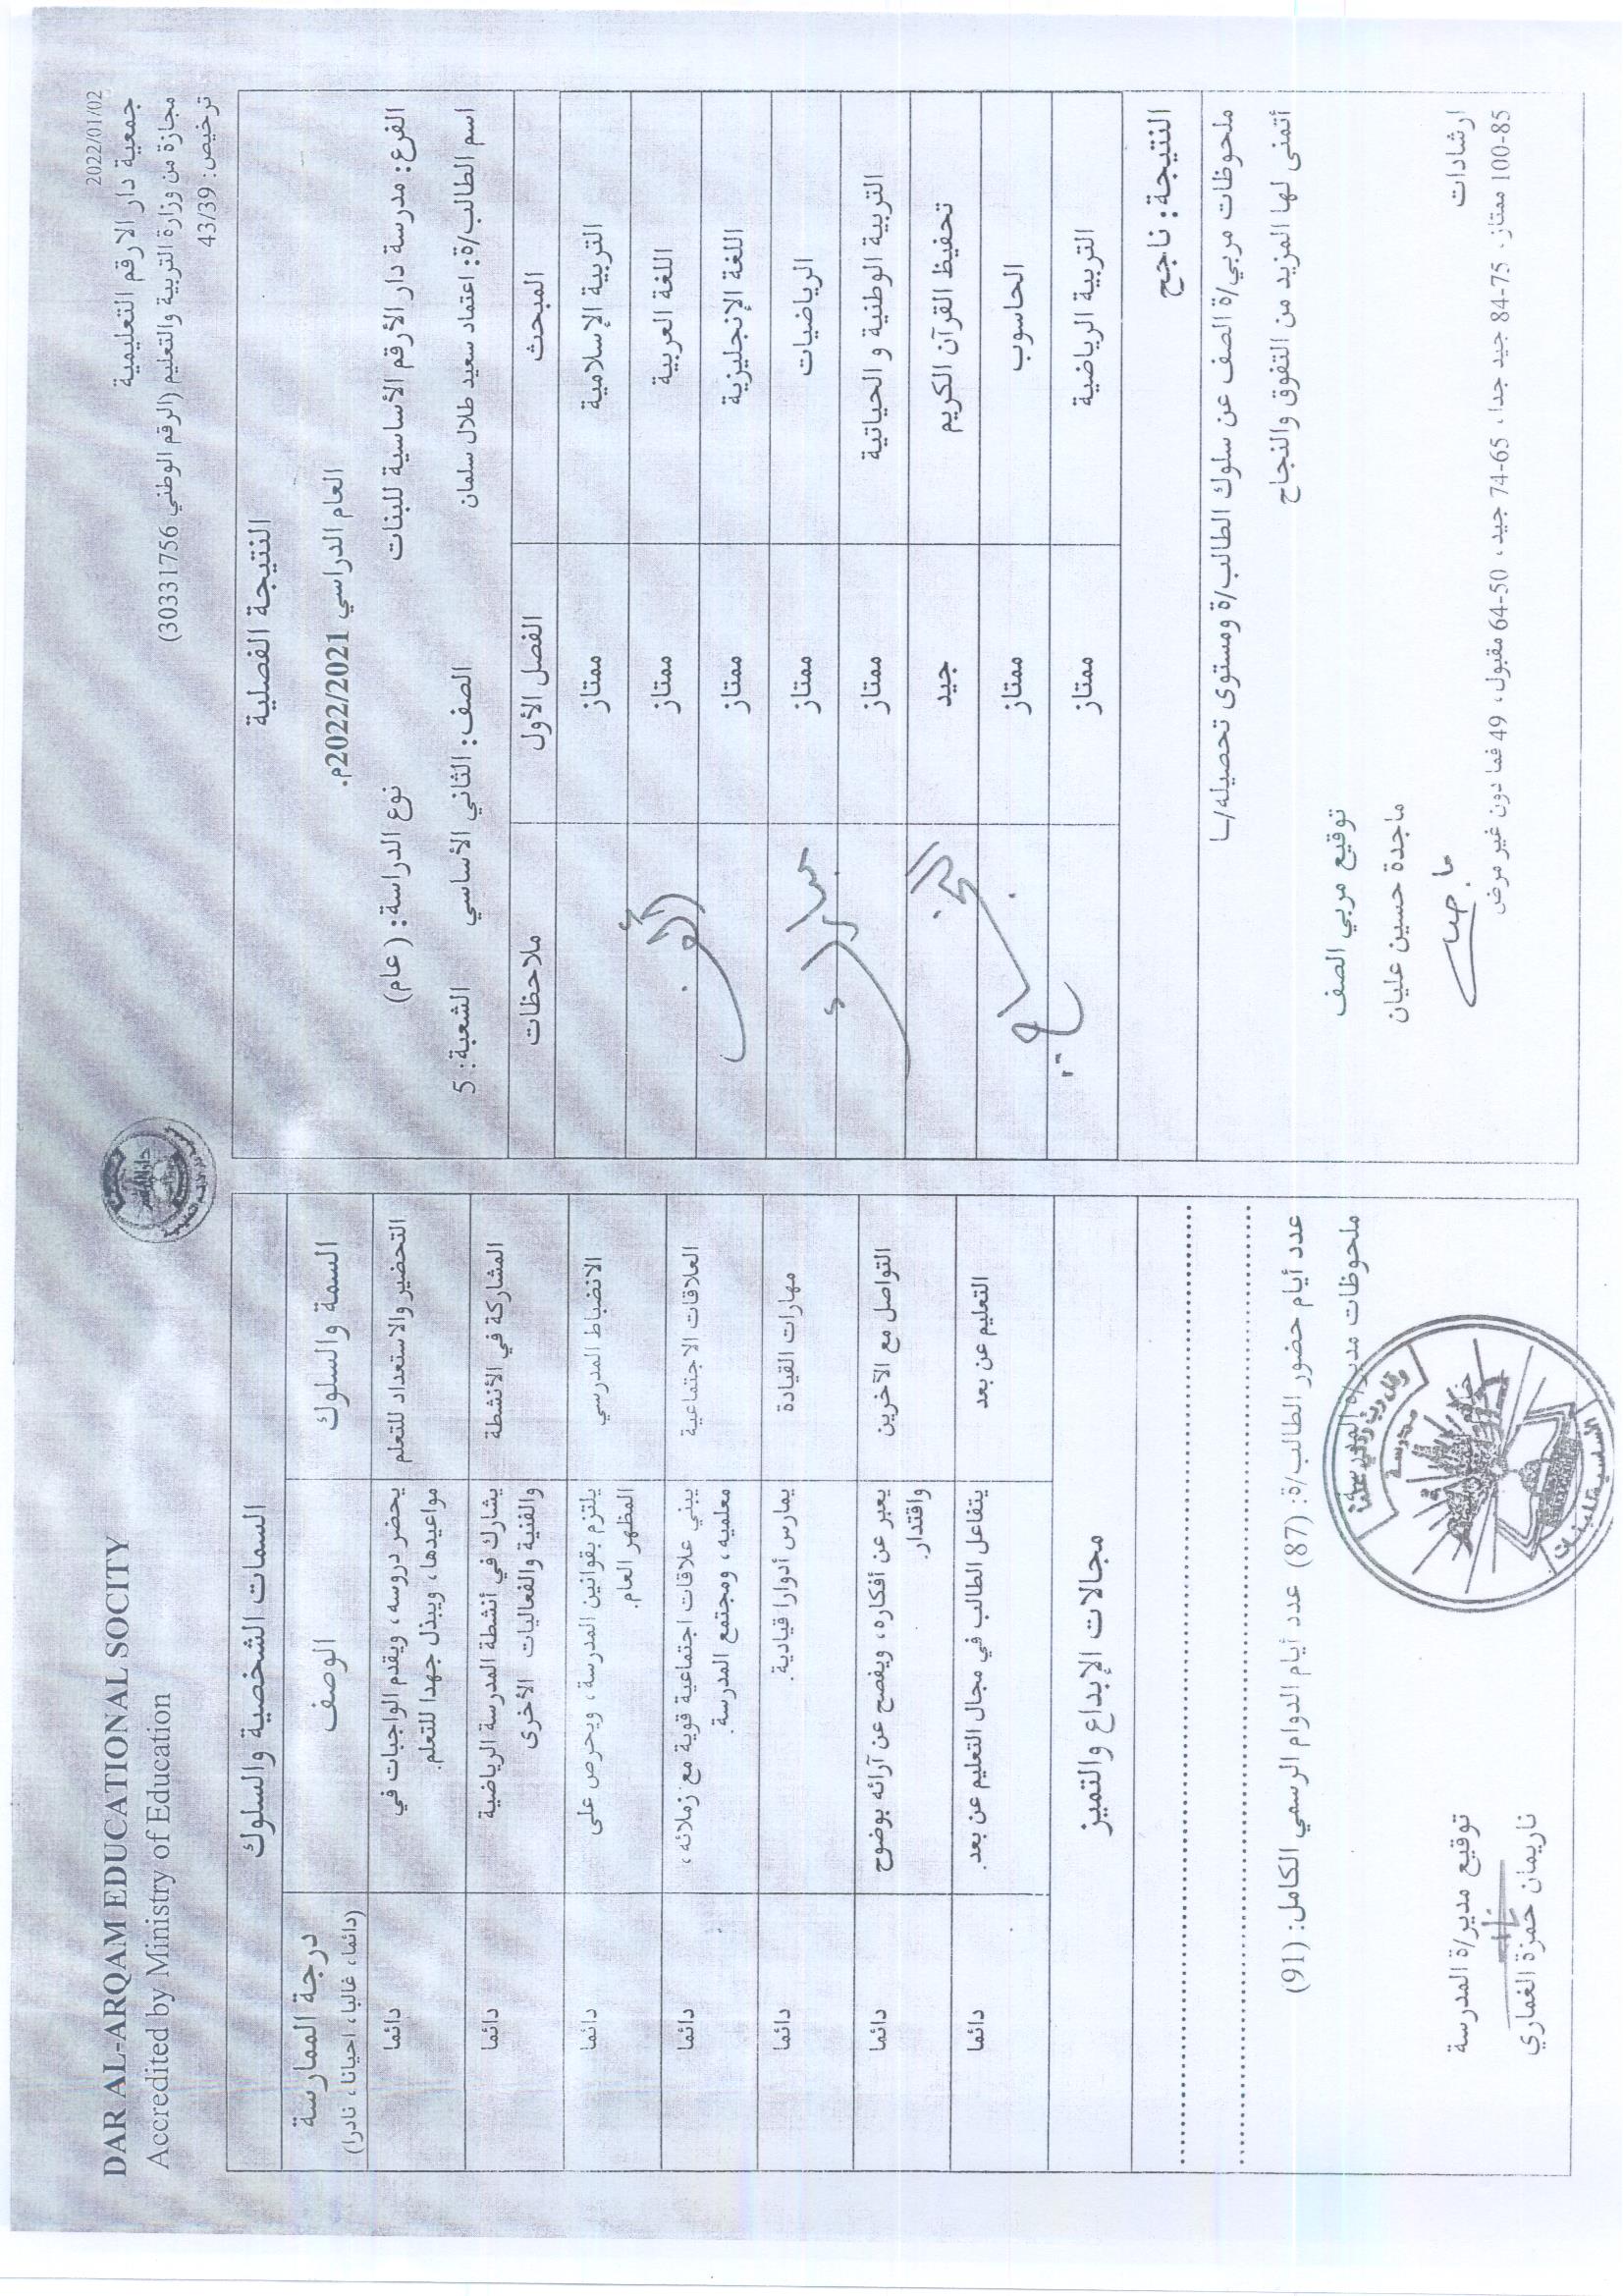 2022/01/02
جمعية دار الارقم التعليمية
مجازة من وزارة التربية والتعليم (الرقم الوطني 30331756)
ترخيص: 43/39
DAR AL-ARQAM EDUCATIONAL SOCITY
Accredited by Ministry of Education
النتيجة الفصلية
العام الدراسي 2022/2021م.
الفرع: مدرسة دار الأرقم الأساسية للبنات نوع الدراسة: (عام)
اسم الطالب/ة: اعتماد سعيد طلال سلمان الصف: الثاني الأساسي الشعبة: 5
المبحث الفصل الأول ملاحظات
التربية الإسلامية ممتاز
اللغة العربية ممتاز
اللغة الإنجليزية ممتاز
الرياضيات ممتاز
التربية الوطنية و الحياتية ممتاز
تحفيظ القرآن الكريم جيد
الحاسوب ممتاز
التربية الرياضية ممتاز
النتيجة: ناجح
ملحوظات مربي/ة الصف عن سلوك الطالب/ة ومستوى تحصيله/ـا
أتمنى لها المزيد من التفوق والنجاح
توقيع مربي الصف
ماجدة حسين عليان
ارشادات
100-85 ممتاز، 84-75 جيد جدا، 74-65 جيد، 64-50 مقبول، 49 فما دون غير مرض
السمات الشخصية والسلوك
السمة والسلوك الوصف درجة الممارسة
(دائما، غالبا، احيانا، نادرا)
التحضير والاستعداد للتعلم يحضر دروسه، ويقدم الواجبات في دائما
مواعيدها، ويبذل جهدا للتعلم.
المشاركة في الأنشطة يشارك في أنشطة المدرسة الرياضية دائما
والفنية والفعاليات الأخرى
الانضباط المدرسي يلتزم بقوانين المدرسة، ويحرص على دائما
المظهر العام.
العلاقات الاجتماعية يبني علاقات اجتماعية قوية مع زملائه، دائما
معلميه، ومجتمع المدرسة.
مهارات القيادة يمارس أدوارا قيادية. دائما
التواصل مع الآخرين يعبر عن أفكاره، ويفصح عن آرائه بوضوح دائما
واقتدار.
التعليم عن بعد يتفاعل الطالب في مجال التعليم عن بعد. دائما
مجالات الإبداع والتميز
عدد أيام حضور الطالب/ة: (87) عدد أيام الدوام الرسمي الكامل: (91)
ملحوظات
وقل رب زدني علما
مدرسة
توقيع مدير/ة المدرسة
ناريمان حمزة الغماري